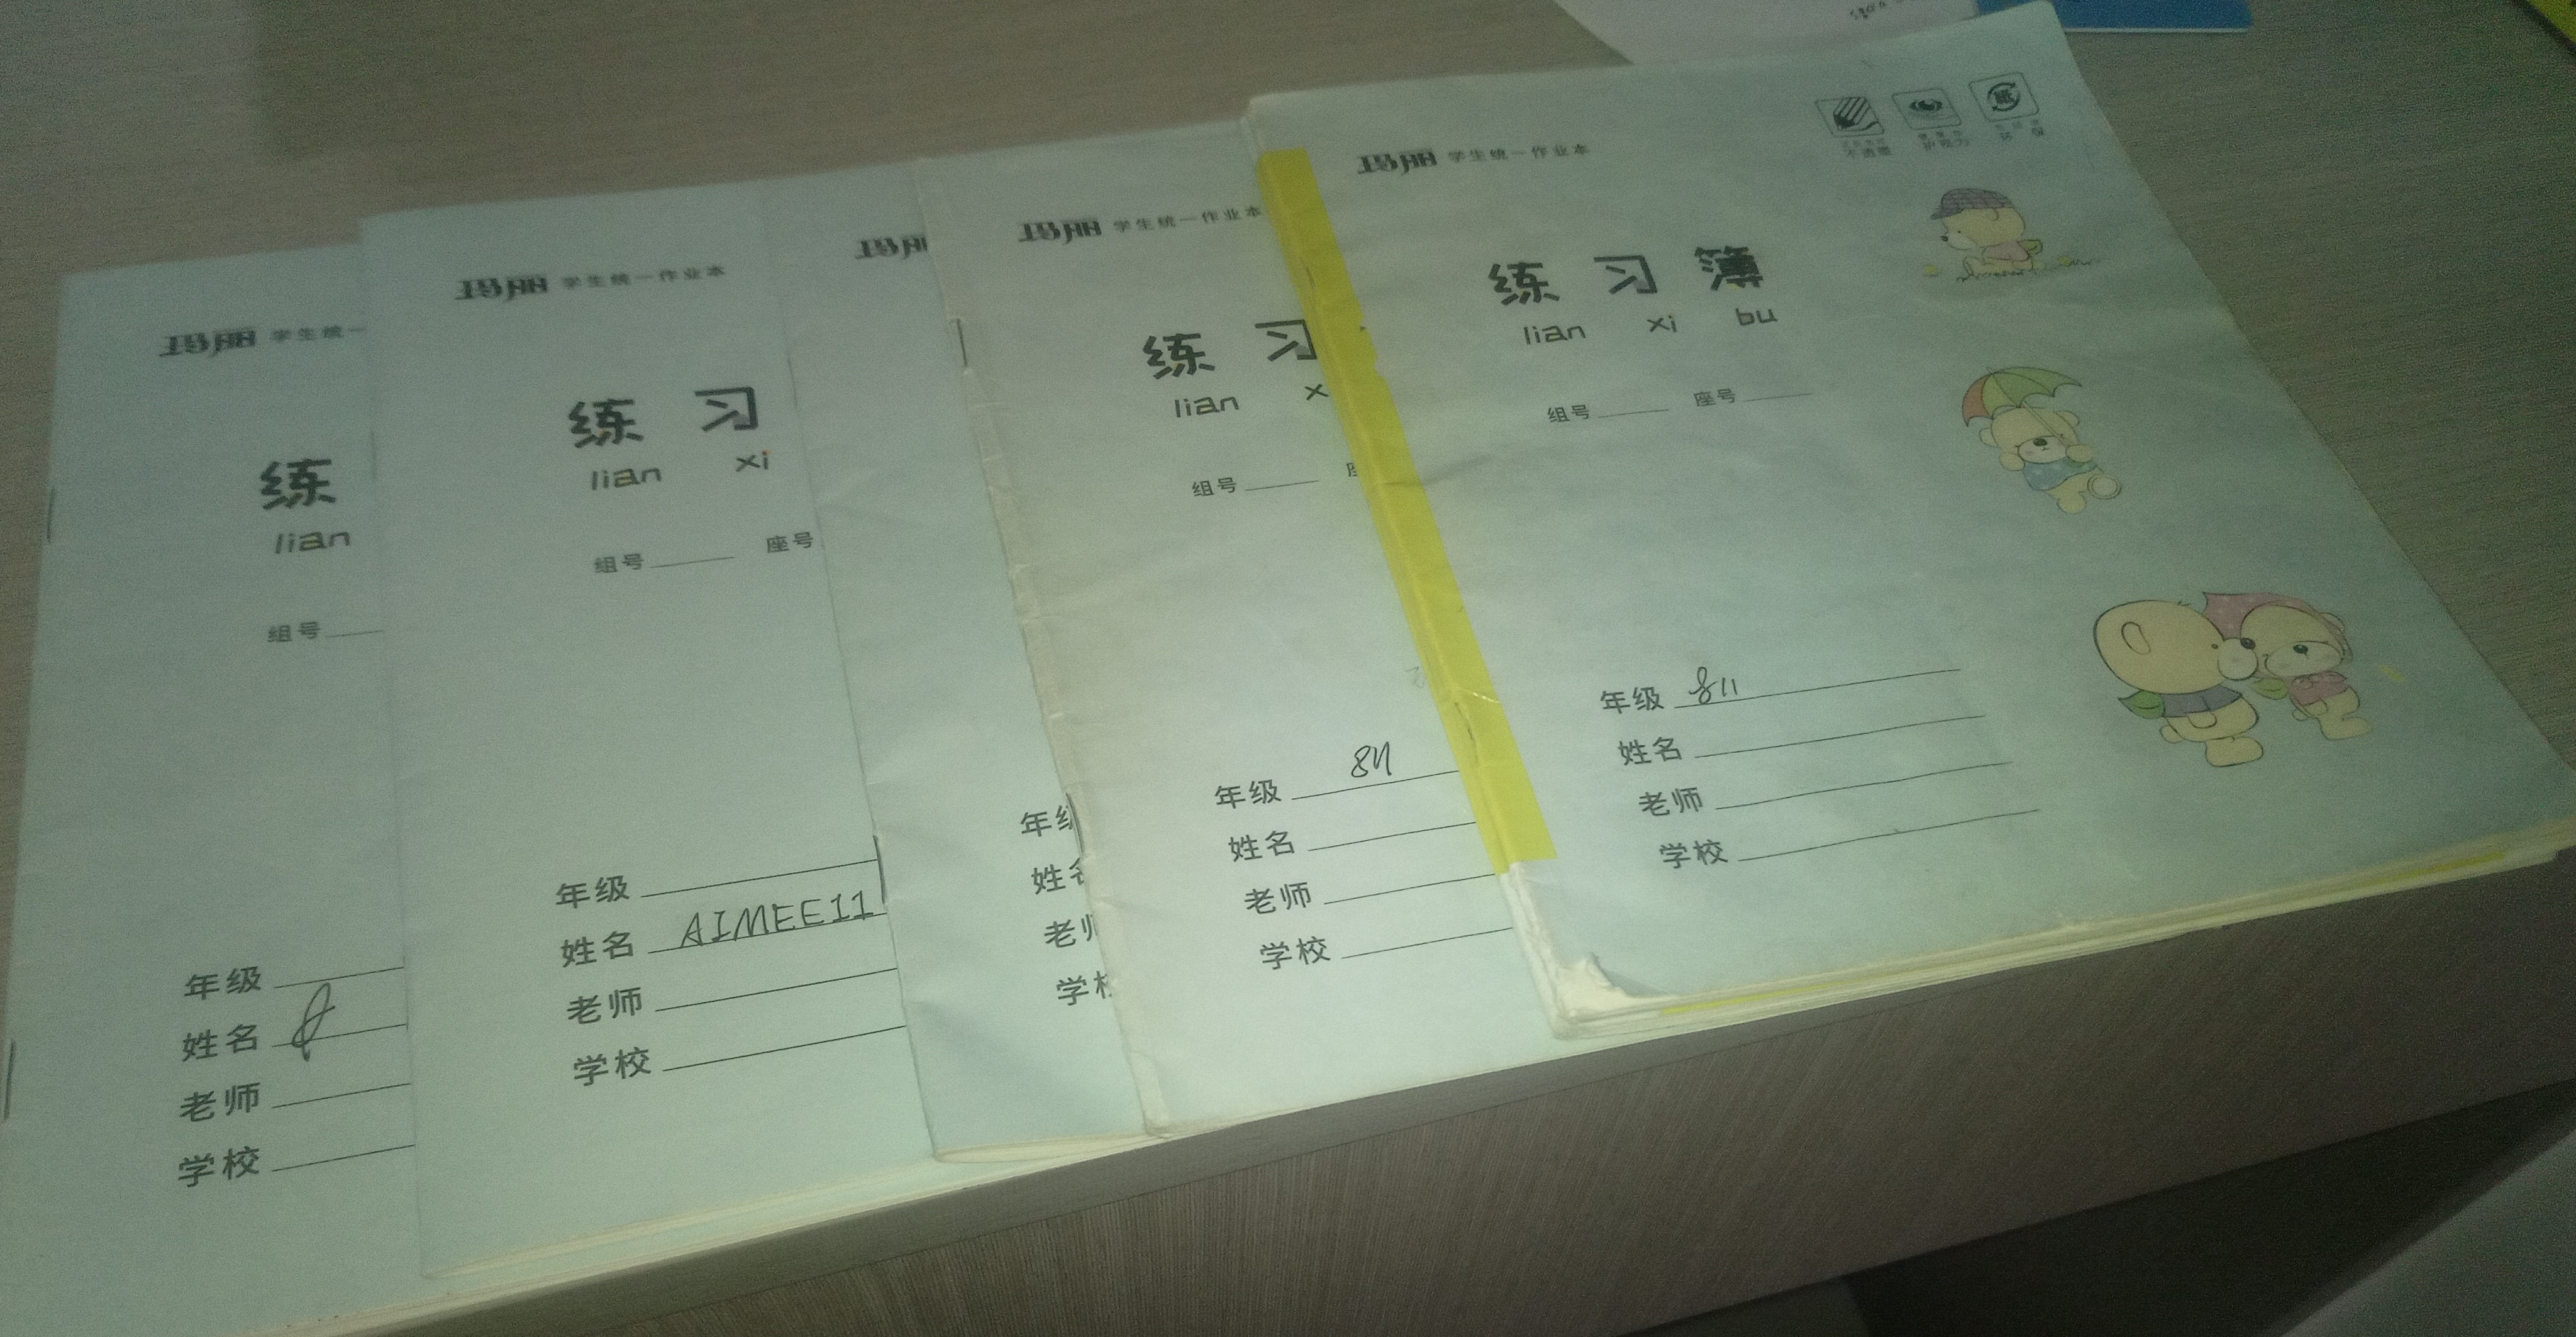 学生统一
练
lian
组号
年级
姓名
老师
学校
学生统一作业本
练 习
lian xi
组号 座号
年级
姓名 AIMEE11
老师
学校
年级
姓名
老师
学校
学生统一作业本
练 习
lian x
组号
年级 811
姓名
老师
学校
学生统一作业本
不透墨 护视力 环保
练 习 簿
lian xi bu
组号 座号
年级 811
姓名
老师
学校